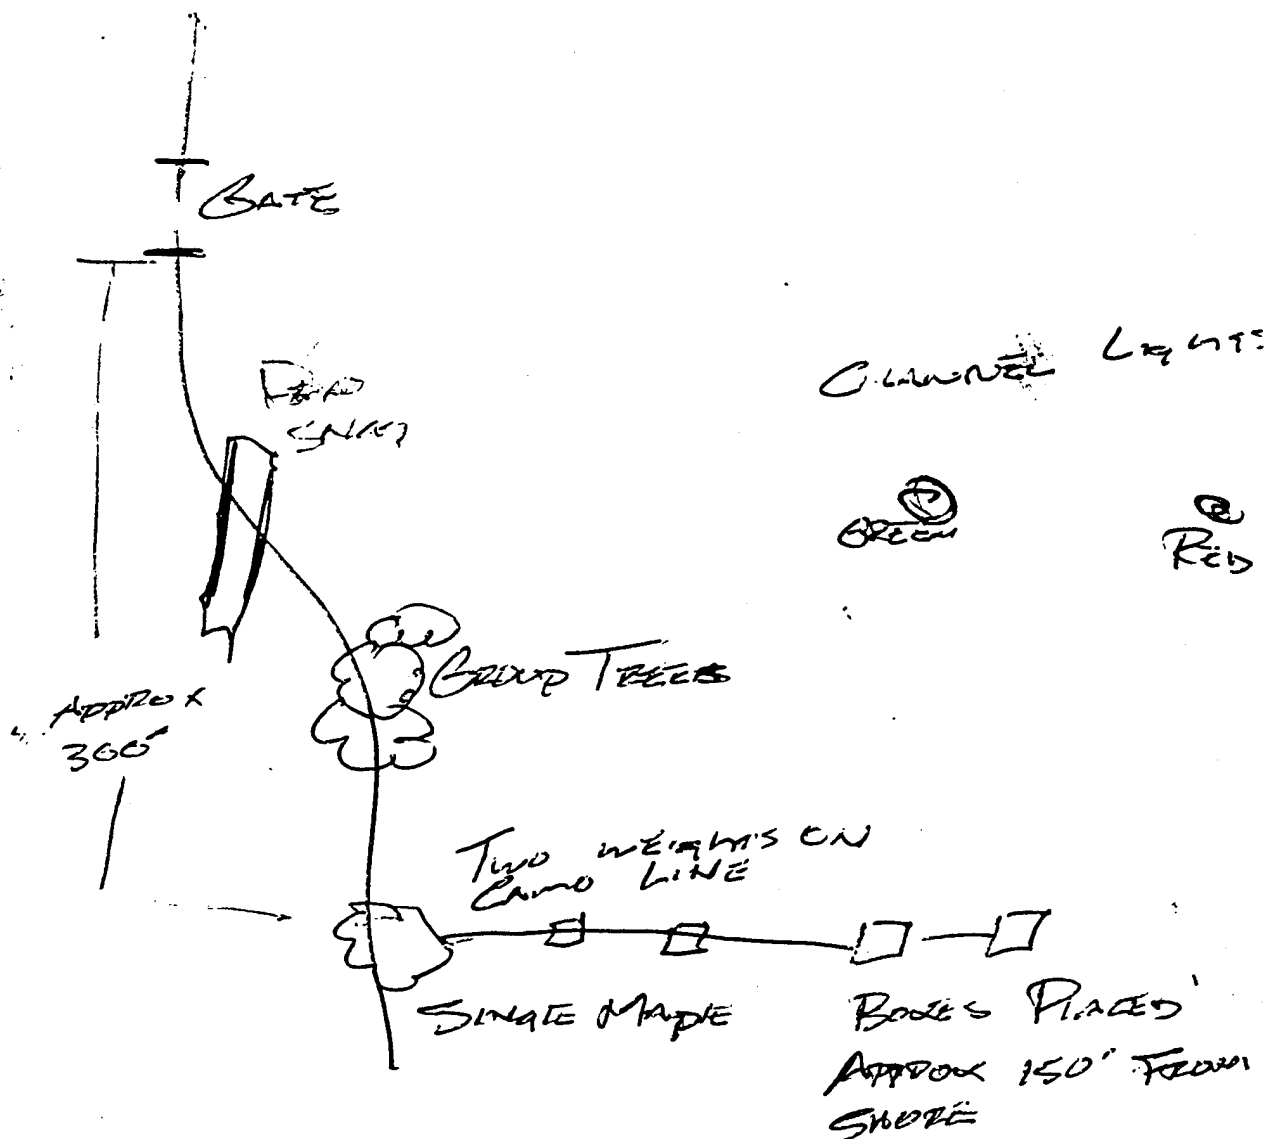 GATE
CHANNEL LIGHTS
GREEN
RED
GROUP TREES
APPROX
300'
TWO WEIGHTS ON
CAMO LINE
SINGLE MAPLE
BOXES PLACED
APPROX 150' FROM
SHORE